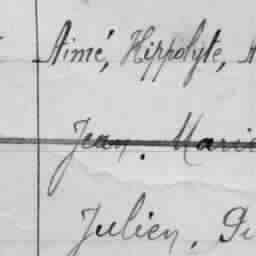 Aimé, Hippolyte,
Jean. Marie
Julien.